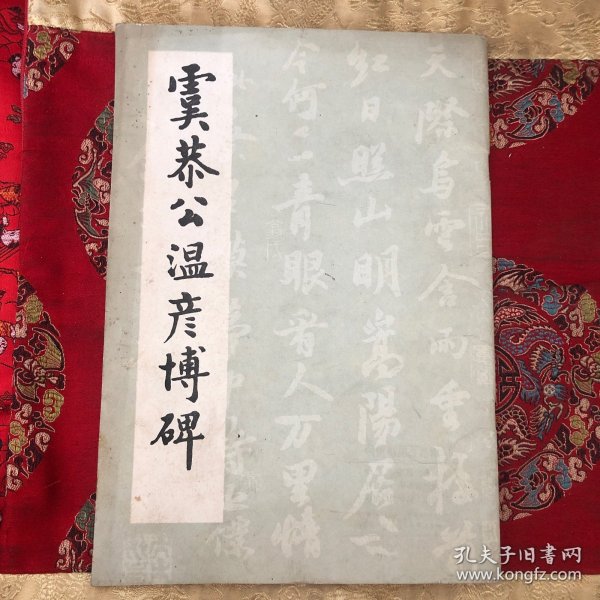 虞恭公温彦博碑
天際烏雲含雨重
紅日照山明嵩陽居士
今何在青眼看人万里情
孔夫子旧书网
www.kongfz.com